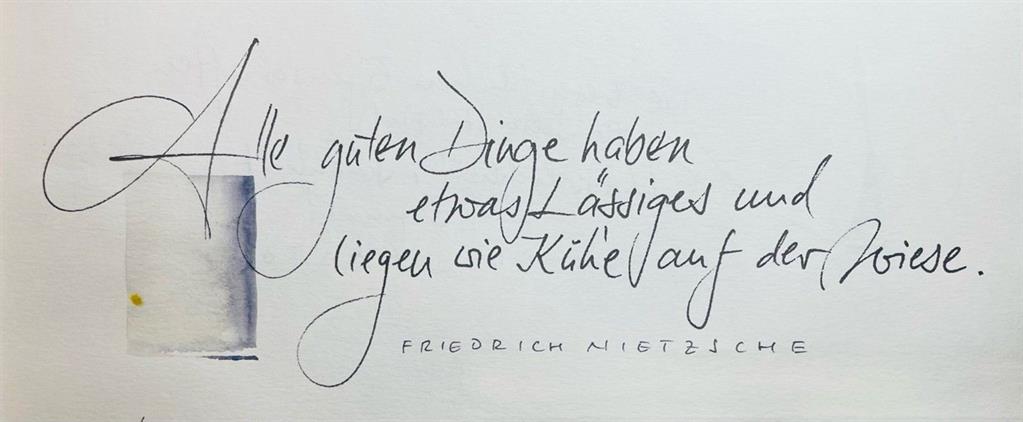 Alle guten Dinge haben
etwas Lässiges und
liegen wie Kühe auf der Wiese.
FRIEDRICH NIETZSCHE